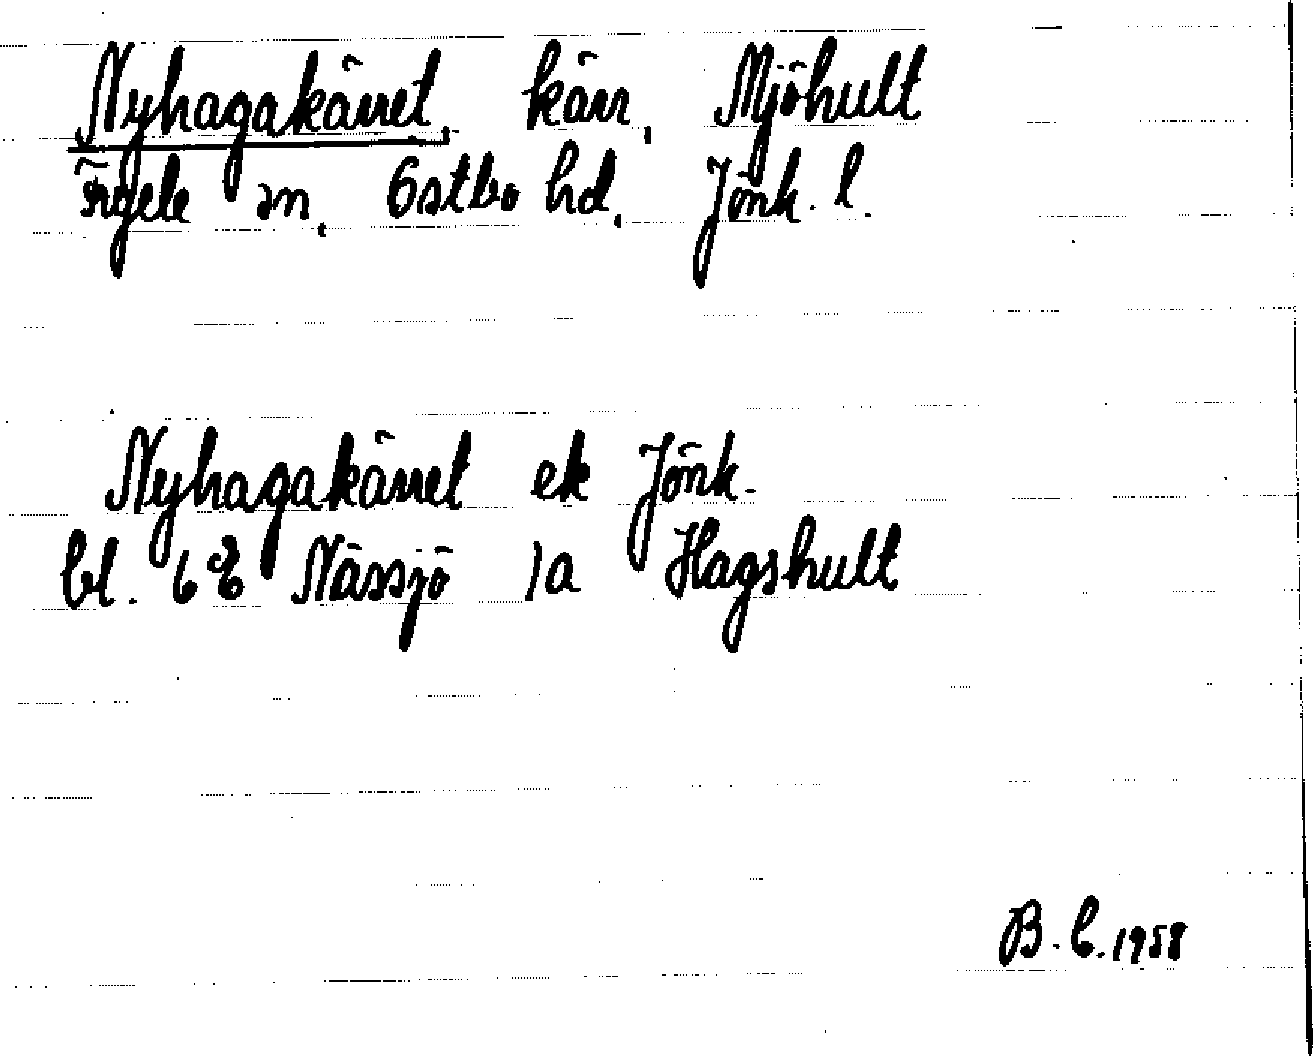 Nyhagakärret, kärr, Mjöhult
Fryele sn, Östbo hd, Jönk. l.
Nyhagakärret ek Jönk.
bl. 6E Nässjö 1a Hagshult
B.C. 1958